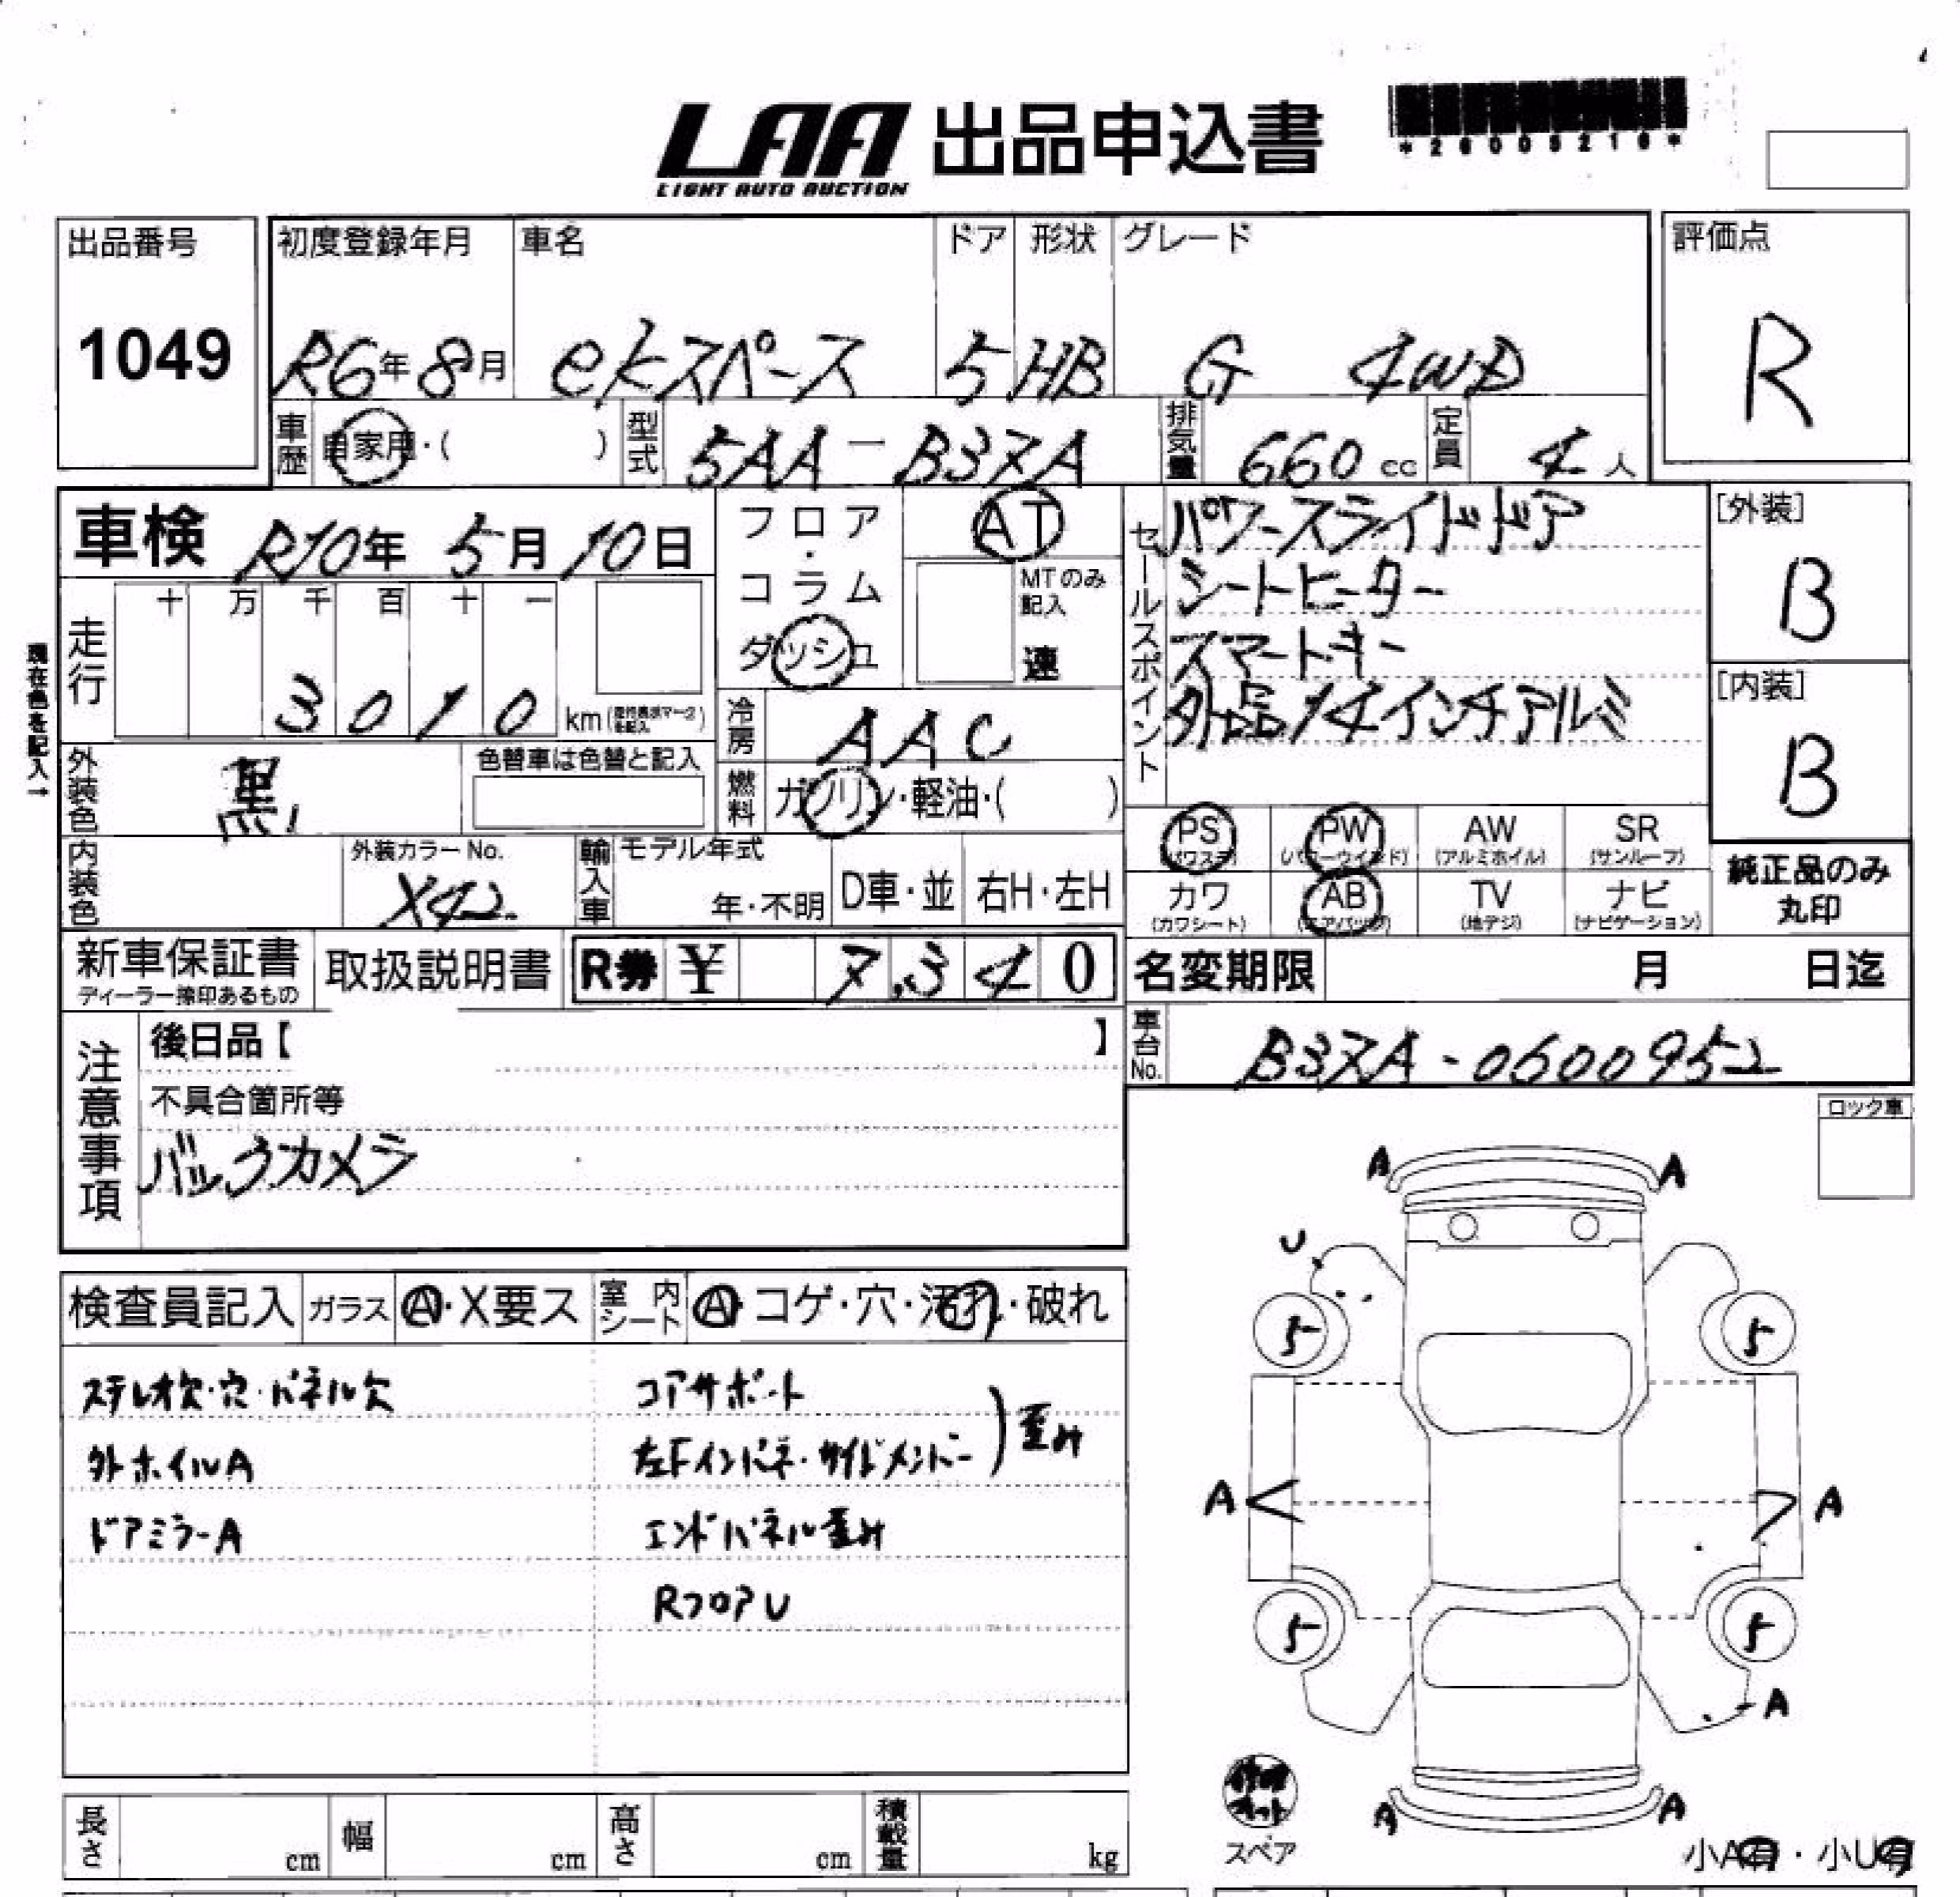 LAA 出品申込書
LIGHT AUTO AUCTION
*26005216*
出品番号 初度登録年月 車名 ドア 形状 グレード 評価点
1049 R6年8月 ekスペース 5 HB G 4WD R
車歴 自家用・( ) 型式 5AA-B37A 排気量 660cc 定員 4人
車検 R10年 5月10日 フロア・コラム ダッシュ AT
MTのみ記入 速
セールスポイント パワースライドドア
シートヒーター
スマートキー
外品14インチアルミ
[外装]
B
[内装]
B
現在色を記入→
走行 十 万 千 百 十 一
3 0 1 0 km
冷房 AAC
外装色 黒 色替車は色替と記入
燃料 ガソリン・軽油・( )
PS (パワステ) PW (パワーウインド) AW (アルミホイル) SR (サンルーフ)
カワ (カワシート) AB (エアバッグ) TV (地デジ) ナビ (ナビゲーション)
純正品のみ
丸印
内装色 外装カラーNo. X42 輸入車 モデル年式 年・不明 D車・並 右H・左H
新車保証書 取扱説明書 R券 ¥ 7,340
ディーラー捺印あるもの
名変期限 月 日迄
車台No. B37A-0600952
注意事項 後日品【 】
不具合箇所等
バックカメラ
ロック車
検査員記入 ガラス A・X要ス 室内シート A・コゲ・穴・汚れ・破れ
ステレオ欠・穴・パネル欠 コアサポート
外ホイルA 左Fインパネ・サイドメンバー )歪み
ドアミラーA エンドパネル歪み
RフロアU
A A
U
5 5
A A
5 5
A
A A
修理キット
スペア
小A有・小U有
長さ cm 幅 cm 高さ cm 積載量 kg